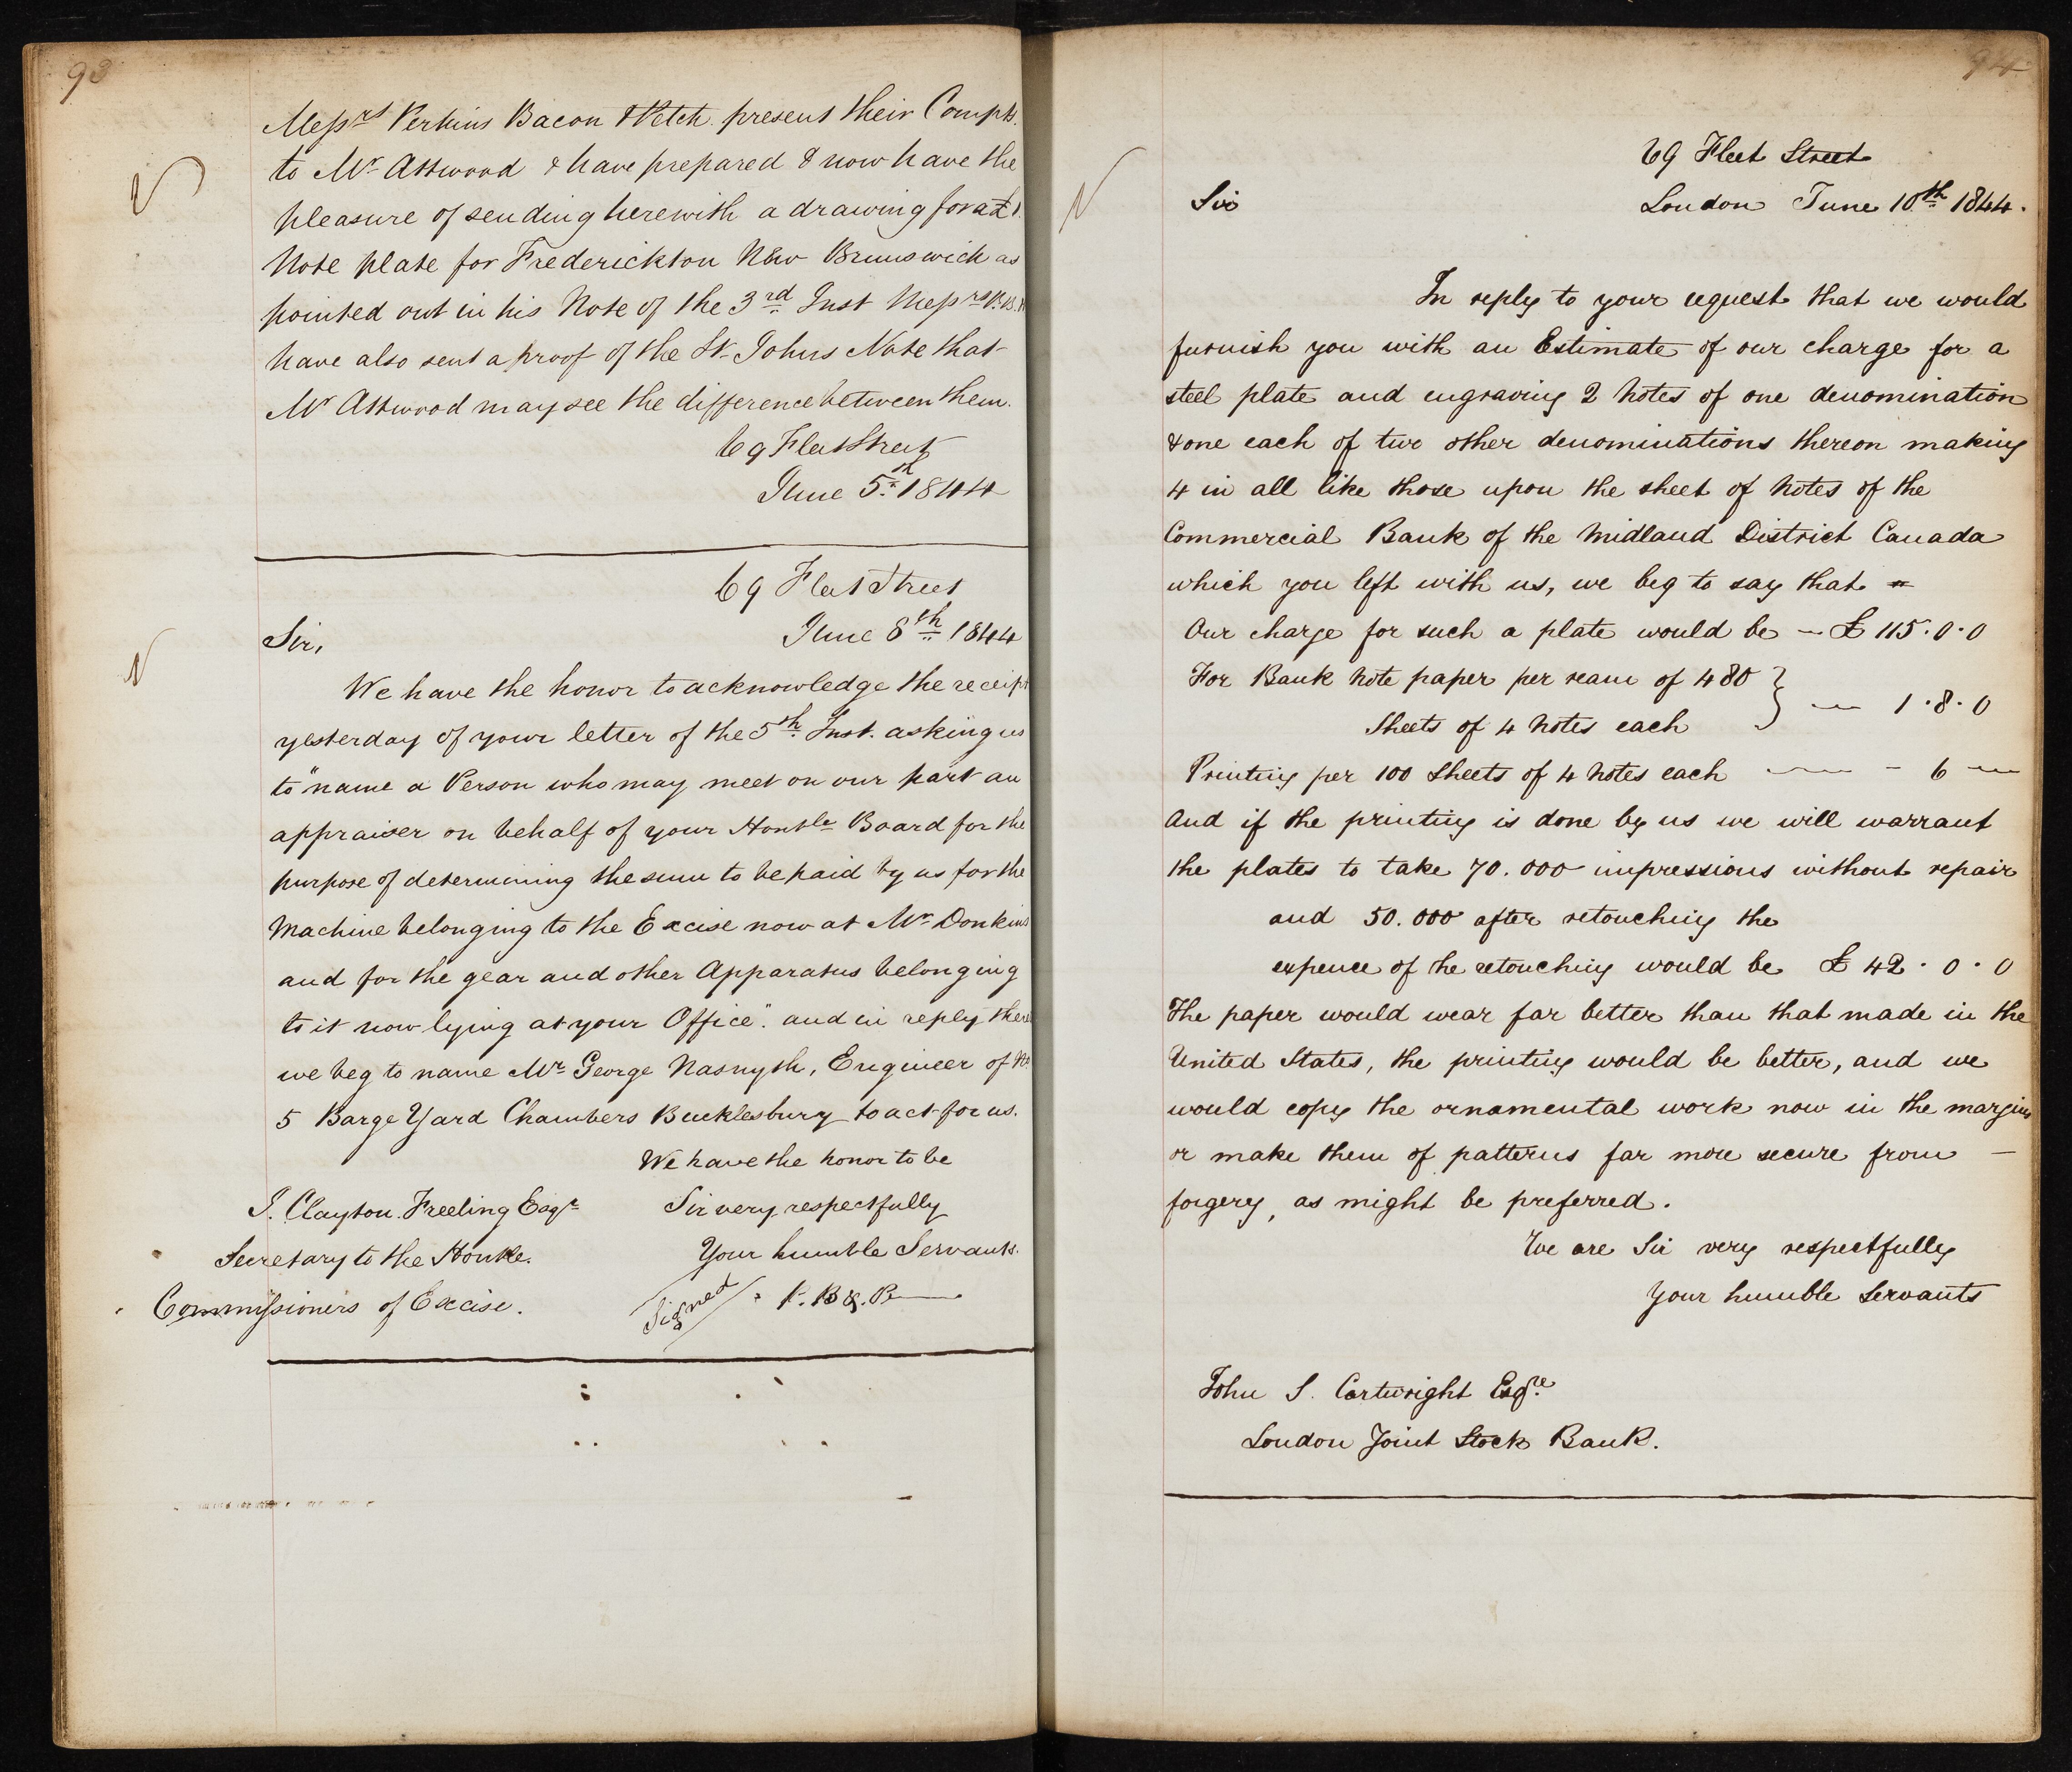 93
Messrs Perkins Bacon & Petch present their Compts.
to Mr Attwood & have prepared & now have the
pleasure of sending herewith a drawing for a £1.
Note plate for Frederickton New Brunswick as
pointed out in his Note of the 3rd Inst Messrs P.B.
have also sent a proof of the St. Johns Note that
Mr Attwood may see the difference between them.
69 Fleet Street
June 5th 1844
69 Fleet Street
June 8th 1844
Sir,
We have the honor to acknowledge the receipt
yesterday of your letter of the 5th Inst. asking us
to "name a Person who may meet on our part an
appraiser on behalf of your Honble Board for the
purpose of determining the sum to be paid by us for the
Machine belonging to the Excise now at Mr Donkins
and for the gear and other Apparatus belonging
to it now lying at your Office". and in reply there
we beg to name Mr George Nasmyth, Engineer of No.
5 Barge Yard Chambers Bucklesbury to act for us.
We have the honor to be
J. Clayton Freeling Esqr
Sir very respectfully
Secretary to the Honble.
Your humble Servants.
Commissioners of Excise.
Signed P. B & P
94
69 Fleet Street
Sir
London June 10th 1844.
In reply to your request that we would
furnish you with an Estimate of our charge for a
steel plate and engraving 2 Notes of one denomination
& one each of two other denominations thereon making
4 in all like those upon the sheet of Notes of the
Commercial Bank of the Midland District Canada
which you left with us, we beg to say that =
Our charge for such a plate would be — £ 115.0.0
For Bank Note paper per ream of 480
Sheets of 4 Notes each } — 1.8.0
Printing per 100 Sheets of 4 Notes each — - 6 —
And if the printing is done by us we will warrant
the plates to take 70.000 impressions without repair
and 50.000 after retouching the
expence of the retouching would be £ 42.0.0
The paper would wear far better than that made in the
United States, the printing would be better, and we
would copy the ornamental work now in the margins
or make them of patterns far more secure from —
forgery, as might be preferred.
We are Sir very respectfully
Your humble Servants
John S. Cartwright Esqre.
London Joint Stock Bank.